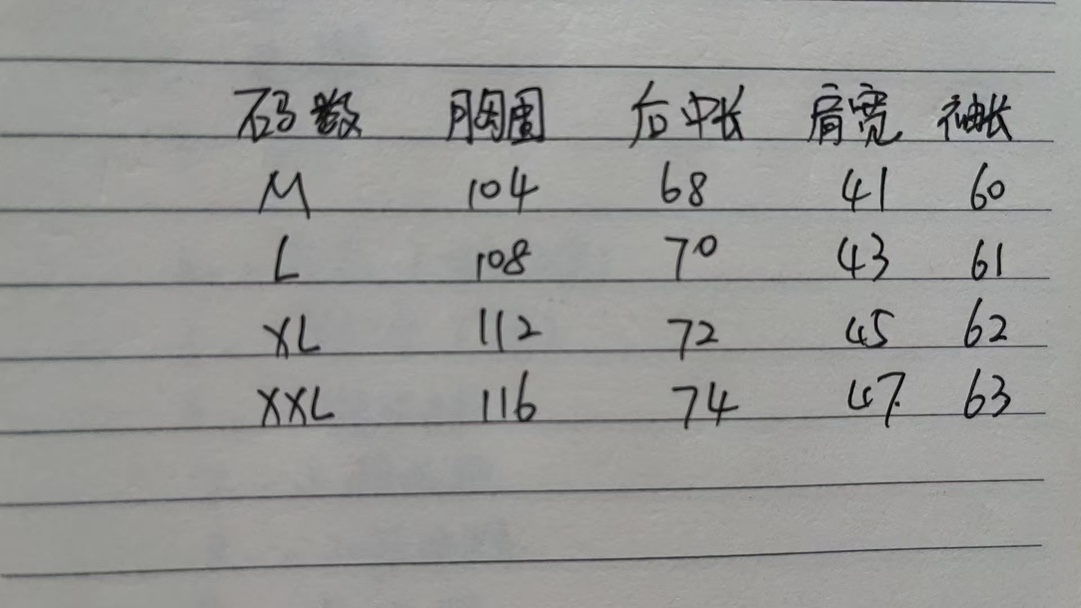 码数 胸围 后中长 肩宽 袖长
M 104 68 41 60
L 108 70 43 61
XL 112 72 45 62
XXL 116 74 47 63